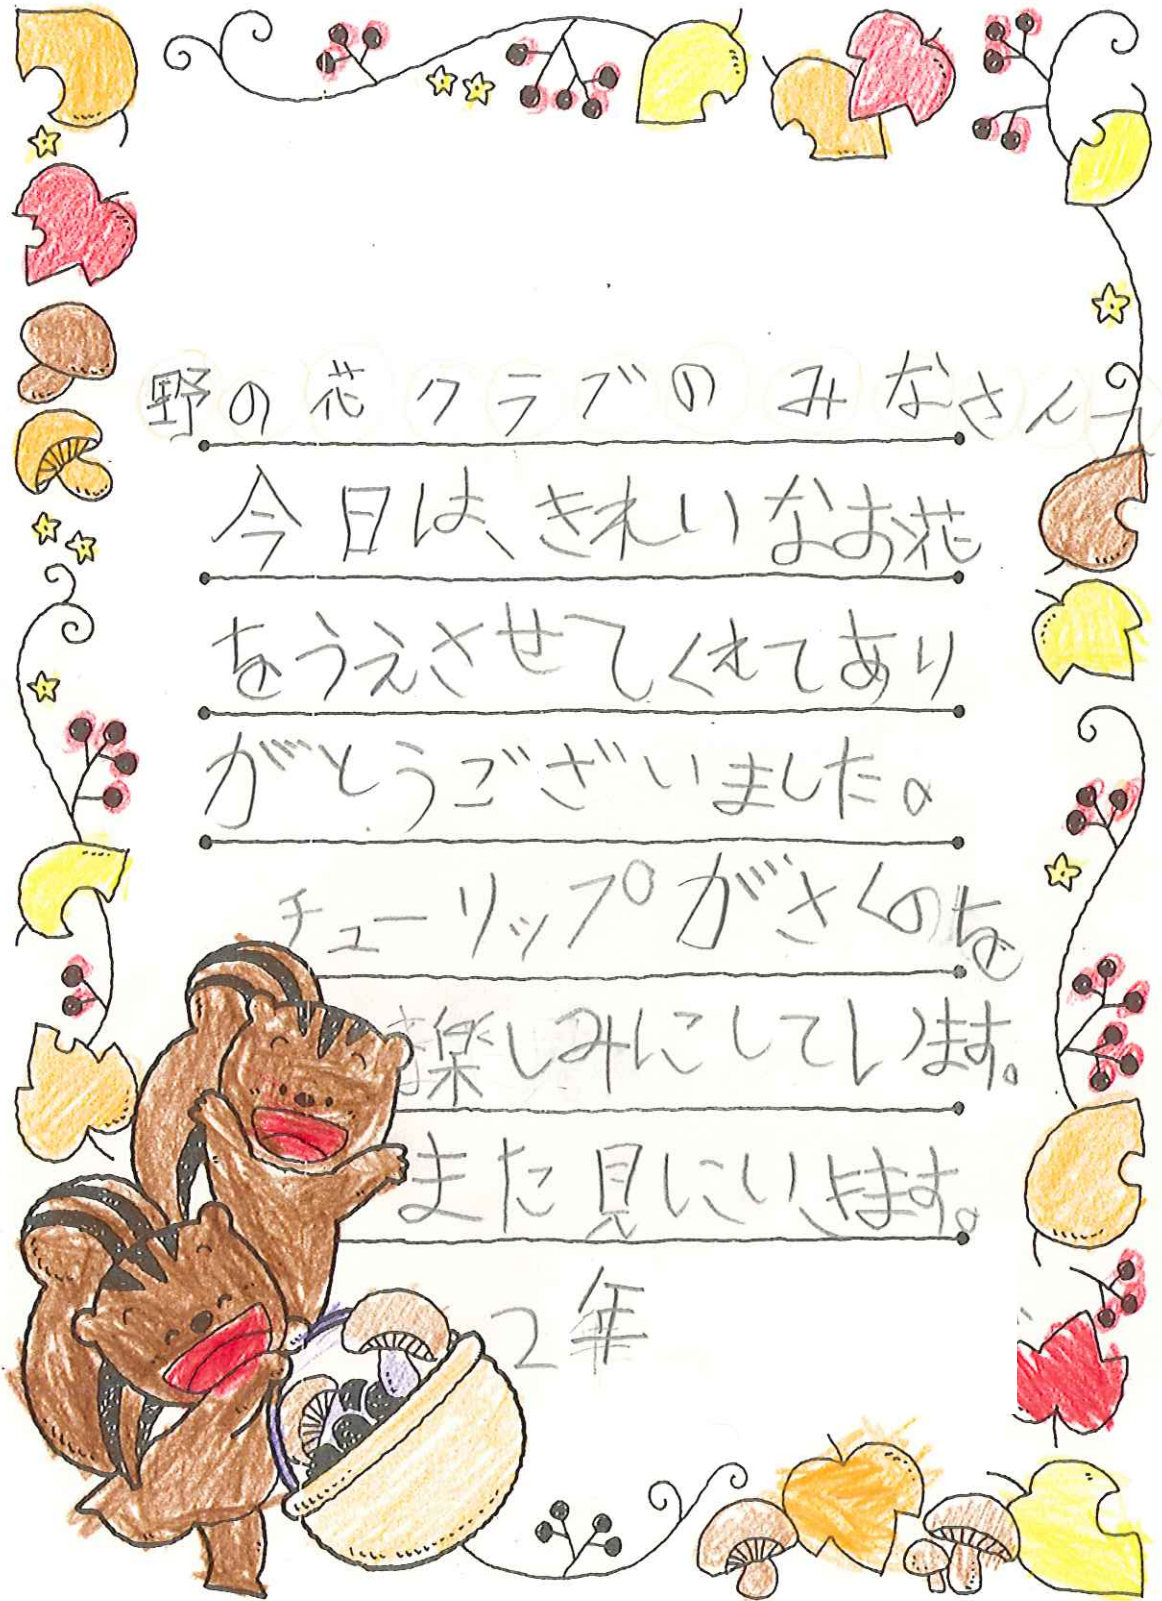 野の花クラブのみなさんへ
今日は、きれいなお花
をうえさせてくれてあり
がとうございました。
チューリップがさくのを
楽しみにしています。
また見にいきます。
2年